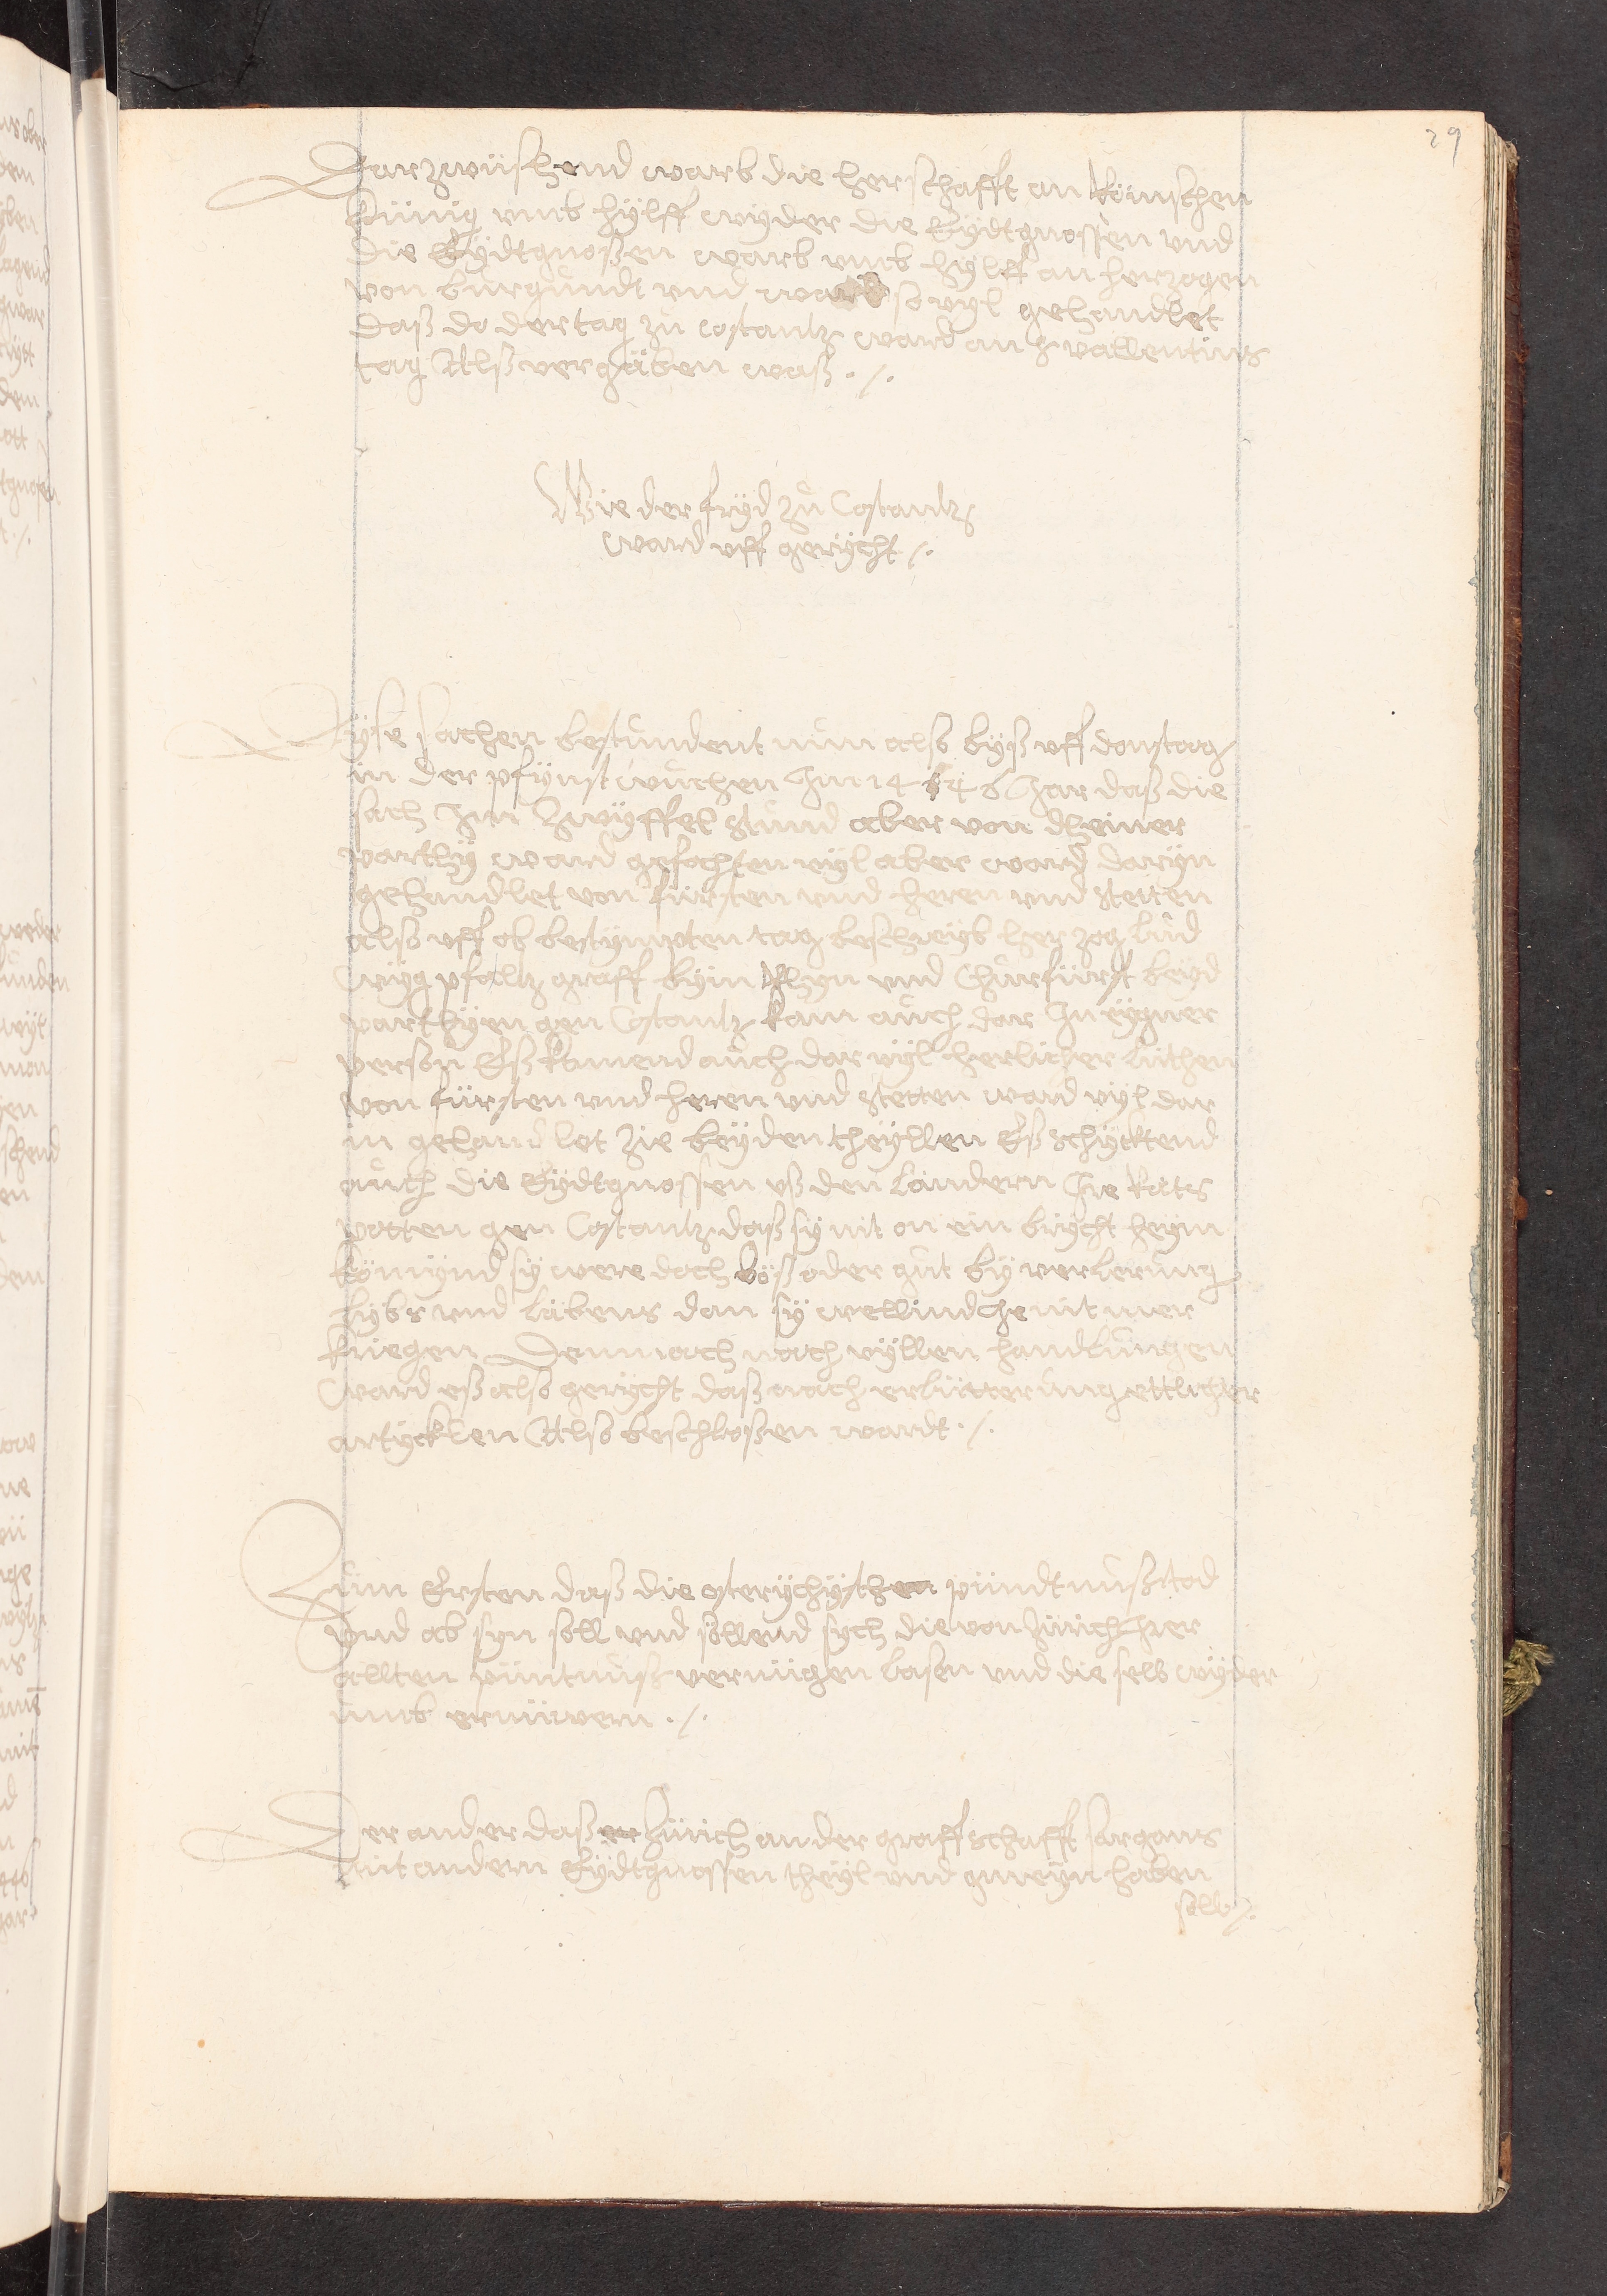 29
Darzwüschend warb die herschafft an Römschen
Künig umb hÿlff wÿder die Eÿdtgnossen und
die Eÿdtgnoßen warb umb hÿlff an herzogen
von burgundt und ward so vyl gehandlet
daß do der tag zu costantz ward an s vallentins
tag Alß vergäben waß ./.
Wie der fryd zu Costantz
ward uff gerÿcht ./.
Dÿse sachen bestundent nun also bÿß uff donstag
in der pfÿnst wuchen Im 1446 Jar daß die
sach Im Zwÿffel stund aber von dheiner
parthÿ ward gefochten vÿl aber ward darÿn
gehandlet von fürsten und heren und stetten
also uff ob bestÿmpten tag beschreÿb herzog lud
wÿg pfaltz graff bÿm Rhyn und Churfürst beÿd
parthÿen gen Costantz kam auch dar In eÿgner
person Eß kamend auch dar vÿl herlicher lüthen
von fürsten und heren und stetten ward vÿl dar
in gehandlet zie beÿden theÿllen Eß schÿcktend
auch die Eÿdtgnossen uß den ländern Ire Rats
potten gen Costantz daß sÿ nit on ein bricht heÿm
kömÿnd sÿ were doch böß oder gut bÿ verlierung
lybs und läbens dan sÿ wellind he nit mer
kriegen Demnach nach vÿllen handlungen
ward eß also gerÿcht daß nach erlütterung ettlicher
artÿcklen Also beschloßen wardt ./.
Zum Ersten daß die osterÿchÿschen pündtnuß tod
und ab syn soll und söllend sych die von Zürich Irer
allten püntnuß vernügen lasen und die selb wÿder
umb ernüwern ./.
Der ander daß Zürich an der graffschafft sargans
mit andern Eÿdtgnossen theÿl und gmeÿn haben
sollen ./.